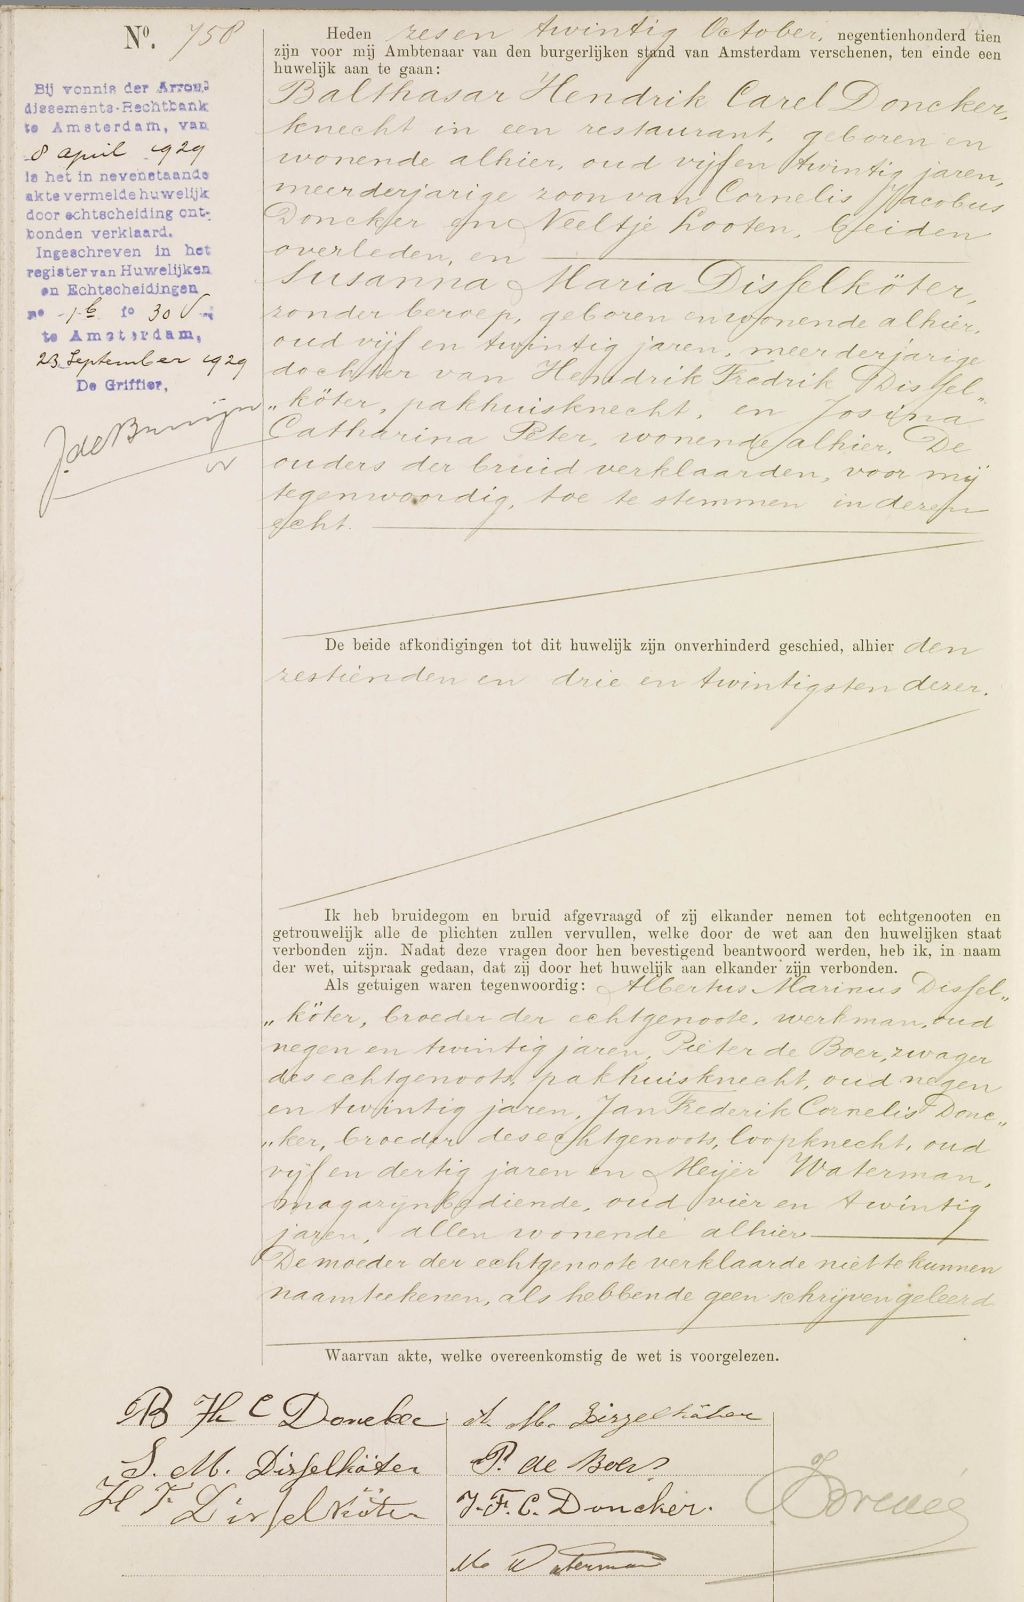 No. 758
Bij vonnis der Arron-
dissements-Rechtbank
te Amsterdam, van
8 april 1929
is het in nevenstaande
akte vermelde huwelijk
door echtscheiding ont-
bonden verklaard.
Ingeschreven in het
register van Huwelijken
en Echtscheidingen
no 1b fo 30
te Amsterdam,
23 September 1929
De Griffier,
Heden zes en twintig October, negentienhonderd tien
zijn voor mij Ambtenaar van den burgerlijken stand van Amsterdam verschenen, ten einde een
huwelijk aan te gaan:
Balthasar Hendrik Carel Doncker,
knecht in een restaurant, geboren en
wonende alhier, oud vijf en twintig jaren,
meerderjarige zoon van Cornelis Jacobus
Doncker en Neeltje Looten, beiden
overleden, en
Susanna Maria Disselköter,
zonder beroep, geboren en wonende alhier,
oud vijf en twintig jaren, meerderjarige
dochter van Hendrik Fredrik Dissel„
„köter, pakhuisknecht, en Josina
Catharina Peter, wonende alhier. De
ouders der bruid verklaarden, voor mij
tegenwoordig, toe te stemmen in dezen
echt.
De beide afkondigingen tot dit huwelijk zijn onverhinderd geschied, alhier den
zestienden en drie en twintigsten dezer.
Ik heb bruidegom en bruid afgevraagd of zij elkander nemen tot echtgenooten en
getrouwelijk alle de plichten zullen vervullen, welke door de wet aan den huwelijken staat
verbonden zijn. Nadat deze vragen door hen bevestigend beantwoord werden, heb ik, in naam
der wet, uitspraak gedaan, dat zij door het huwelijk aan elkander zijn verbonden.
Als getuigen waren tegenwoordig: Albertus Marinus Dissel„
„köter, broeder der echtgenoote, werkman, oud
negen en twintig jaren, Pieter de Boer, zwager
des echtgenoots, pakhuisknecht, oud negen
en twintig jaren, Jan Frederik Cornelis Donc„
„ker, broeder des echtgenoots, loopknecht, oud
vijf en dertig jaren en Meijer Waterman,
magazijnbediende, oud vier en twintig
jaren, allen wonende alhier
De moeder der echtgenoote verklaarde niet te kunnen
naamteekenen, als hebbende geen schrijven geleerd
Waarvan akte, welke overeenkomstig de wet is voorgelezen.
B H C Doncker
S. M. Disselköter
H F Disselköter
A. M. Disselköter
P. de Boer
J. F. C. Doncker.
M Waterman